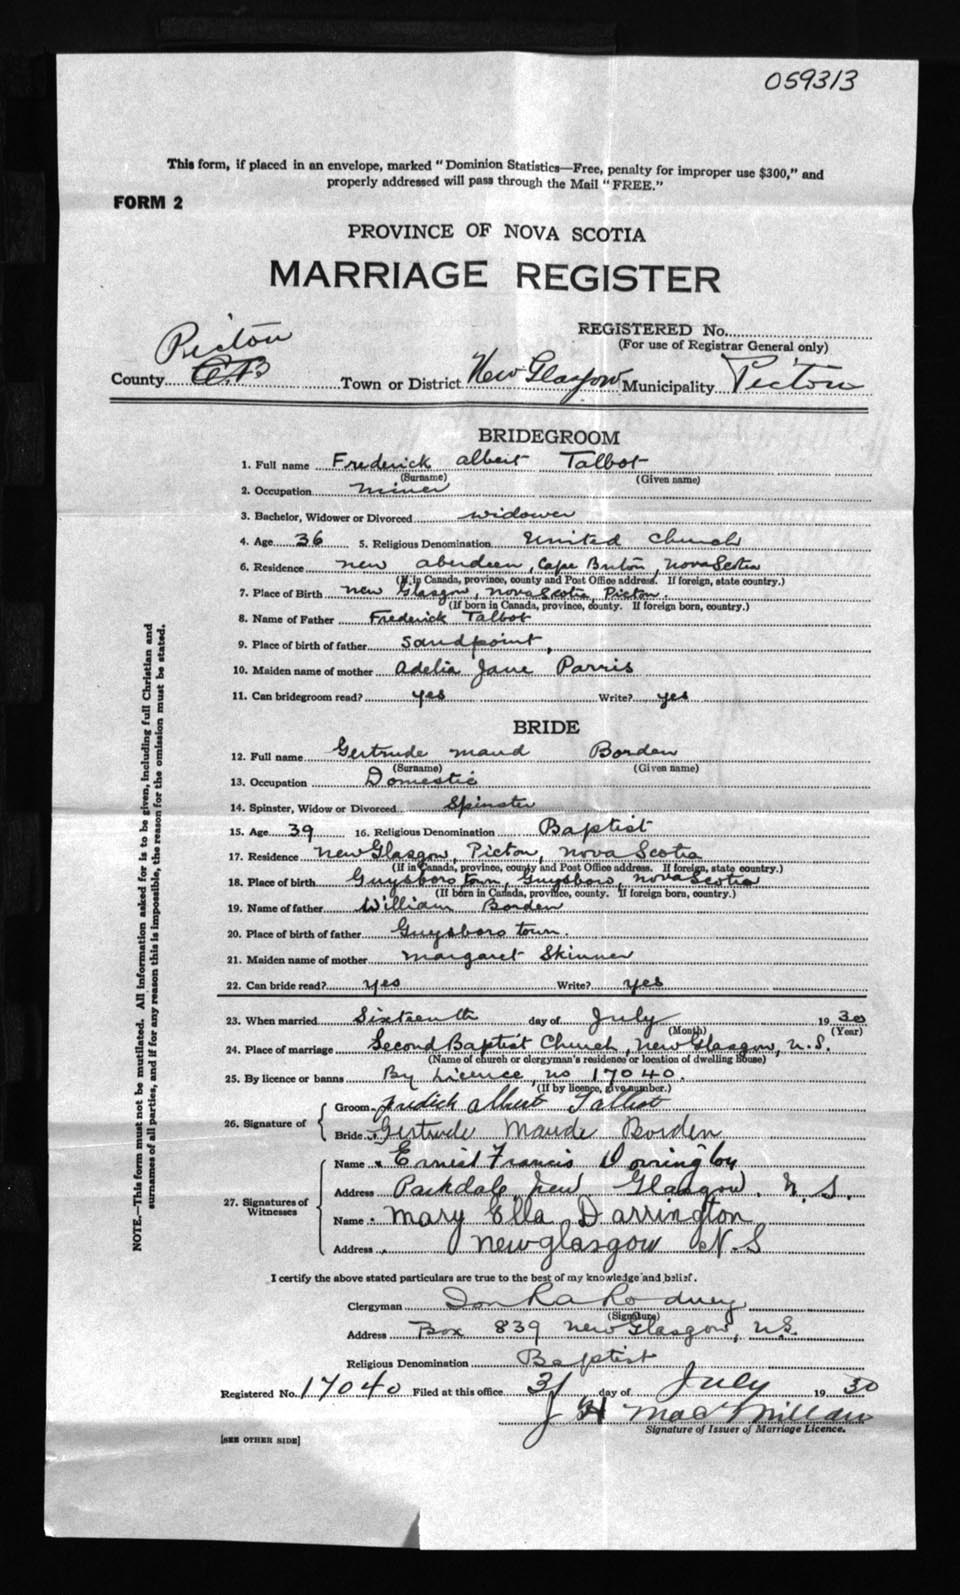 059313
This form, if placed in an envelope, marked "Dominion Statistics—Free, penalty for improper use $300," and
properly addressed will pass through the Mail "FREE."
FORM 2
PROVINCE OF NOVA SCOTIA
MARRIAGE REGISTER
REGISTERED No.
(For use of Registrar General only)
Pictou
County C.B. Town or District New Glasgow Municipality Pictou
BRIDEGROOM
1. Full name Frederick albert Talbot
(Surname) (Given name)
2. Occupation miner
3. Bachelor, Widower or Divorced widower
4. Age 36 5. Religious Denomination United Church
6. Residence new aberdeen, Cape Breton, Nova Scotia
(If in Canada, province, county and Post Office address. If foreign, state country.)
7. Place of Birth new Glasgow, Nova Scotia, Pictou.
(If born in Canada, province, county. If foreign born, country.)
8. Name of Father Frederick Talbot
9. Place of birth of father Sandpoint,
10. Maiden name of mother adelia Jane Parris
11. Can bridegroom read? yes Write? yes
BRIDE
12. Full name Gertrude maud Borden
(Surname) (Given name)
13. Occupation Domestic
14. Spinster, Widow or Divorced Spinster
15. Age 39 16. Religious Denomination Baptist
17. Residence New Glasgow, Pictou, Nova Scotia
(If in Canada, province, county and Post Office address. If foreign, state country.)
18. Place of birth Guysboro town, Guysboro, Nova Scotia
(If born in Canada, province, county. If foreign born, country.)
19. Name of father William Borden
20. Place of birth of father Guysboro town.
21. Maiden name of mother margaret Skinner
22. Can bride read? yes Write? yes
23. When married Sixteenth day of July 1930
(Month) (Year)
24. Place of marriage Second Baptist Church, New Glasgow, N.S.
(Name of church or clergyman's residence or location of dwelling house)
25. By licence or banns By Licence, no 17040.
(If by licence, give number.)
26. Signature of
Groom fredick Albert Talbot
Bride Gertrude Maude Borden
27. Signatures of Witnesses
Name Ernest Francis Dorrington
Address Parkdale, New Glasgow. N.S.
Name Mary Ella Darrington
Address newglasgow N.S
I certify the above stated particulars are true to the best of my knowledge and belief.
Clergyman
(Signature)
Address Box 839 New Glasgow, N.S.
Religious Denomination Baptist
Registered No. 17040 Filed at this office 31 day of July 1930
J H MacMillan
Signature of Issuer of Marriage Licence.
[SEE OTHER SIDE]
NOTE.—This form must not be mutilated. All information asked for is to be given, including full Christian and
surnames of all parties, and if for any reason this is impossible, the reason for the omission must be stated.